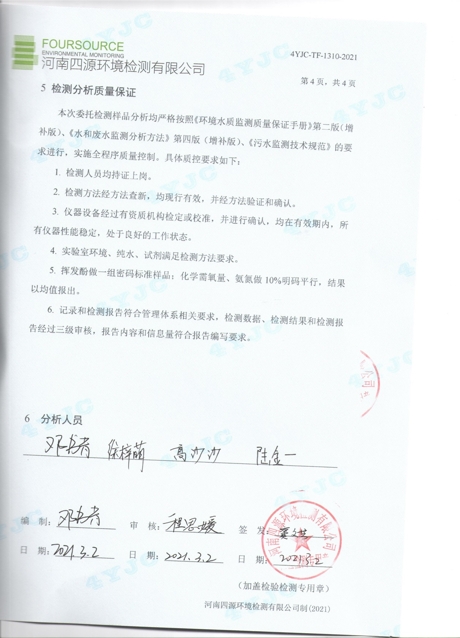 FOURSOURCE
ENVIRONMENTAL MONITORING
河南四源环境检测有限公司
4YJC-TF-1310-2021
第 4 页，共 4 页
5 检测分析质量保证
本次委托检测样品分析均严格按照《环境水质监测质量保证手册》第二版(增
补版)、《水和废水监测分析方法》第四版（增补版）、《污水监测技术规范》的要
求进行，实施全程序质量控制。具体质控要求如下：
1. 检测人员均持证上岗。
2. 检测方法经方法查新，均现行有效，并经方法验证和确认。
3. 仪器设备经过有资质机构检定或校准，并进行确认，均在有效期内，所
有仪器性能稳定，处于良好的工作状态。
4. 实验室环境、纯水、试剂满足检测方法要求。
5. 挥发酚做一组密码标准样品；化学需氧量、氨氮做 10%明码平行，结果
以均值报出。
6. 记录和检测报告符合管理体系相关要求，检测数据、检测结果和检测报
告经过三级审核，报告内容和信息量符合报告编写要求。
6 分析人员
徐梓萌 高沙沙 陆金一
编 制： 审 核：程思媛 签 发：
日 期：2021.3.2 日 期：2021.3.2 日 期：2021.3.2
河南四源环境检测有限公司
(加盖检验检测专用章)
河南四源环境检测有限公司制(2021)
4YJC